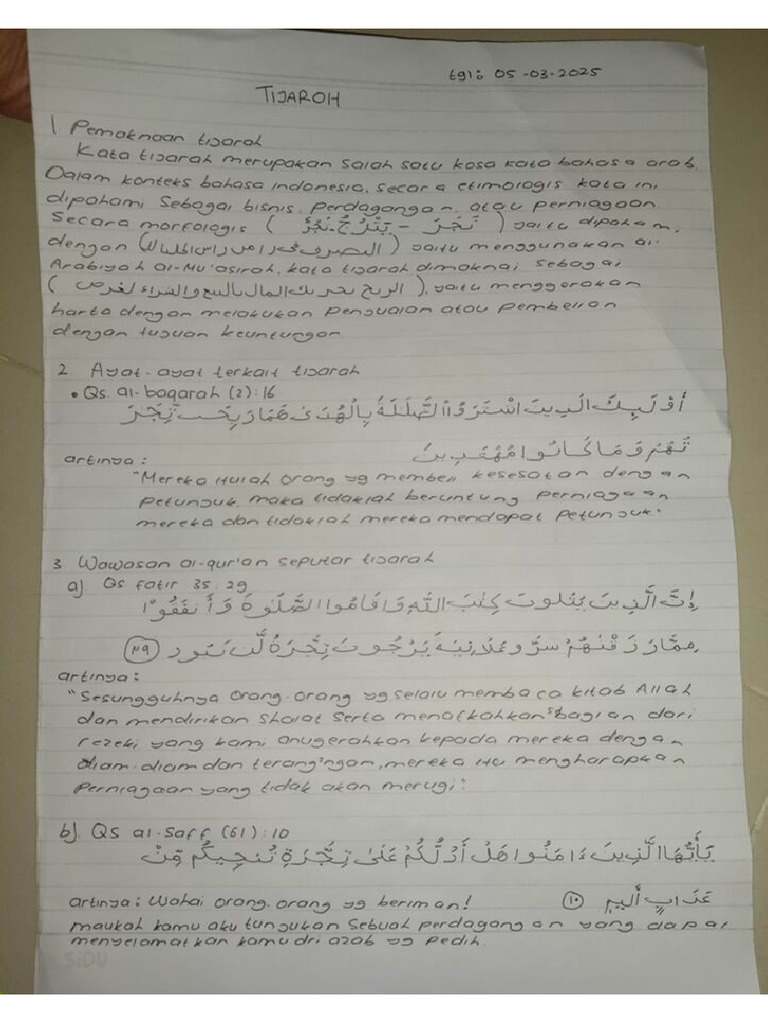 tgl: 05-03-2025
TIJAROH
1 Pemaknaan tijarah
Kata tijarah merupakan salah satu kosa kata bahasa arab.
Dalam konteks bahasa indonesia, secara etimologis kata ini
dipahami sebagai bisnis, perdagangan, atau perniagaan.
Secara morfologis ( تَجَرَ - يَتْرُجُ - تَجْرً ) yaitu dipaham,
dengan ( التصرف في راس المال ) yaitu menggunakan al.
Arabiyah al-Mu'asirah, kata tijarah dimaknai sebagai
( الربح تحريك المال بالبيع والشراء لغرض ), yaitu menggerakan
harta dengan melakukan penjualan atau pembelian
dengan tujuan keuntungan
2 Ayat-ayat terkait tijarah
• Qs. al-baqarah (2): 16
أُوْلَٰٓئِكَ الَّذِينَ اشْتَرَوُاْ الضَّلَٰلَةَ بِالْهُدَىٰ فَمَا رَبِحَت تِّجَٰرَ
تُهُمْ وَمَا كَانُوا مُهْتَدِينَ
artinya:
"Mereka itulah orang yg membeli kesesatan dengan
petunjuk, maka tidaklah beruntung perniagaan
mereka dan tidaklah mereka mendapat petunjuk."
3 Wawasan al-qur'an seputar tijarah
a) Qs fatir 35. 29
إِنَّ الَّذِينَ يَتْلُونَ كِتَٰبَ اللَّهِ وَأَقَامُوا الصَّلَوٰةَ وَأَنفَقُوا
مِمَّا رَزَقْنَٰهُمْ سِرًّا وَعَلَانِيَةً يَرْجُونَ تِجَٰرَةً لَّن تَبُورَ ٢٩
artinya:
"Sesungguhnya orang-orang yg selalu membaca kitab Allah
dan mendirikan sholat serta menafkahkan sbagian dari
rezeki yang kami anugerahkan kepada mereka dengan
diam-diam dan terang'ngan, mereka itu mengharapkan
perniagaan yang tidak akan merugi:
b) QS al-Saff (61): 10
يَٰٓأَيُّهَا الَّذِينَ ءَامَنُوا هَلْ أَدُلُّكُمْ عَلَىٰ تِجَٰرَةٍ تُنجِيكُم مِّنْ
عَذَابٍ أَلِيمٍ ١٠
artinya: Wahai orang-orang yg beriman!
maukah kamu aku tunjukan sebuah perdagangan yang dapat
menyelamatkan kamu dri azab yg pedih.
SiDU